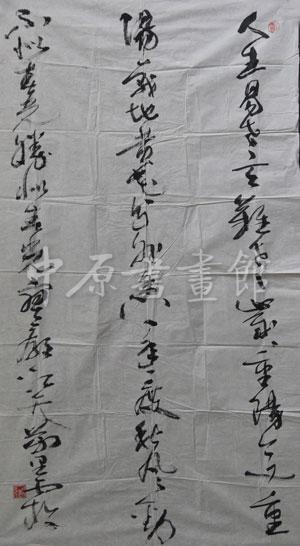 人生易老天難老歲々重陽今又重
陽戰地黃花分外香一年一度秋風勁
不似春光勝似春光寥廓江天萬里霜
中原書畫館